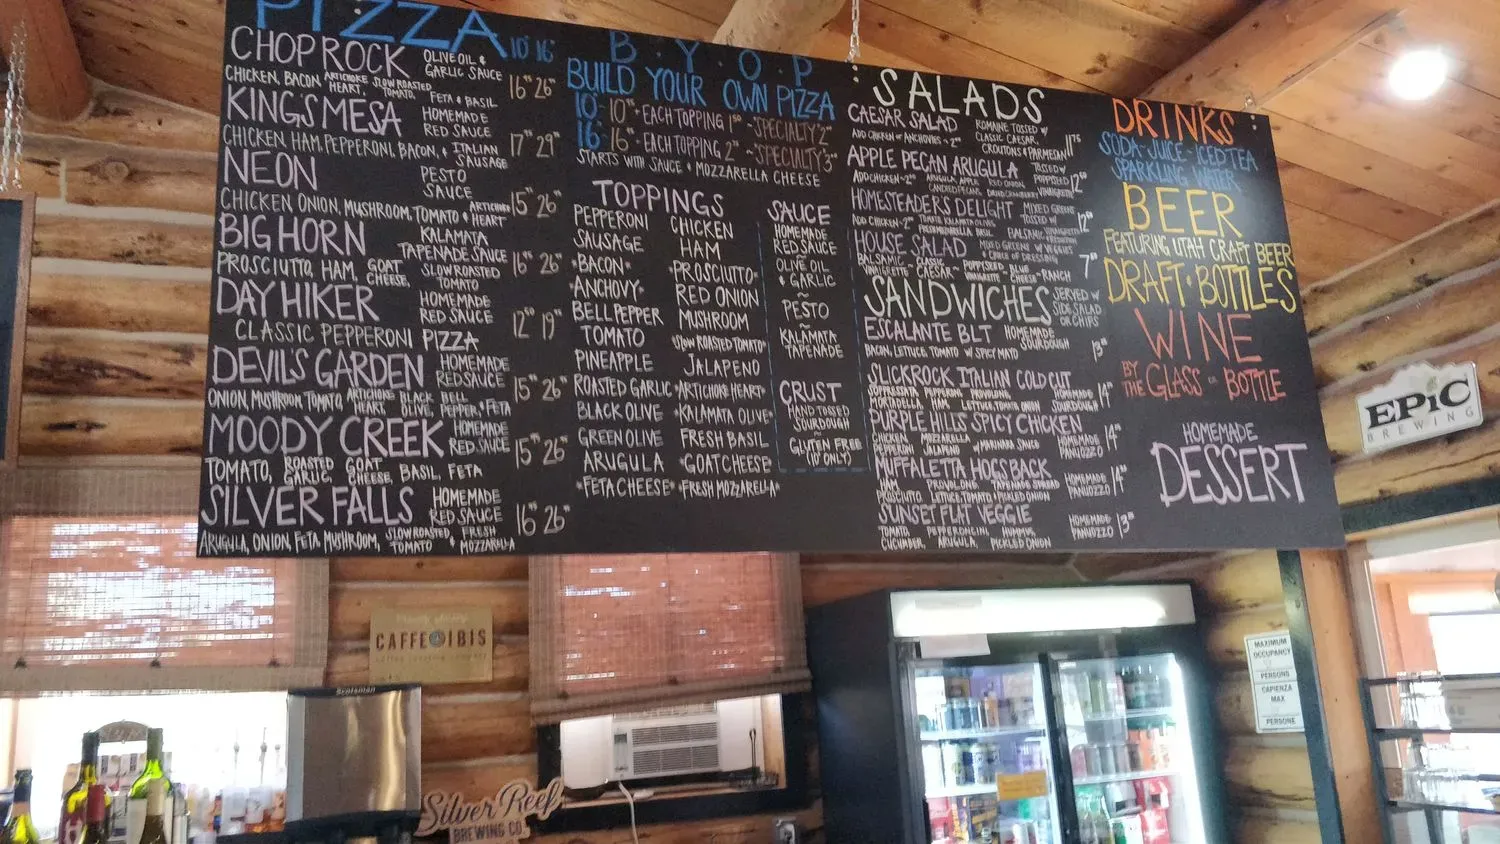 PIZZA 10" 16"
CHOP ROCK OLIVE OIL & GARLIC SAUCE 16" 26"
CHICKEN, BACON, ARTICHOKE HEART, SLOW ROASTED TOMATO, FETA & BASIL
KINGS MESA HOMEMADE RED SAUCE 17" 29"
CHICKEN, HAM, PEPPERONI, BACON, & ITALIAN SAUSAGE
NEON PESTO SAUCE 15" 26"
CHICKEN, ONION, MUSHROOM, TOMATO & ARTICHOKE HEART
BIG HORN KALAMATA TAPENADE SAUCE 16" 26"
PROSCIUTTO, HAM, GOAT CHEESE, SLOW ROASTED TOMATO
DAY HIKER HOMEMADE RED SAUCE 12" 19"
CLASSIC PEPPERONI PIZZA
DEVIL'S GARDEN HOMEMADE RED SAUCE 15" 26"
ONION, MUSHROOM, TOMATO, ARTICHOKE HEART, BLACK OLIVE, BELL PEPPER, & FETA
MOODY CREEK HOMEMADE RED SAUCE 15" 26"
TOMATO, ROASTED GARLIC, GOAT CHEESE, BASIL, FETA
SILVER FALLS HOMEMADE RED SAUCE 16" 26"
ARUGULA, ONION, FETA, MUSHROOM, SLOW ROASTED TOMATO & FRESH MOZZARELLA
B.Y.O.P
BUILD YOUR OWN PIZZA
10" - 10" + EACH TOPPING 1 - *SPECIALTY 2
16" - 16" + EACH TOPPING 2 - *SPECIALTY 3
STARTS WITH SAUCE & MOZZARELLA CHEESE
TOPPINGS
PEPPERONI
SAUSAGE
*BACON*
*ANCHOVY*
BELL PEPPER
TOMATO
PINEAPPLE
ROASTED GARLIC
BLACK OLIVE
GREEN OLIVE
ARUGULA
*FETA CHEESE*
CHICKEN
HAM
*PROSCIUTTO*
RED ONION
MUSHROOM
*SLOW ROASTED TOMATO*
JALAPENO
*ARTICHOKE HEART*
*KALAMATA OLIVE*
FRESH BASIL
*GOAT CHEESE*
*FRESH MOZZARELLA*
SAUCE
HOMEMADE
RED SAUCE
~
OLIVE OIL
& GARLIC
~
PESTO
~
KALAMATA
TAPENADE
CRUST
HAND TOSSED
SOURDOUGH
~
GLUTEN FREE
(10" ONLY)
SALADS
CAESAR SALAD ROMAINE TOSSED W/ CLASSIC CAESAR, CROUTONS & PARMESAN 11.75
ADD CHICKEN OR ANCHOVIES - 2
APPLE PECAN ARUGULA TOSSED W/ POPPYSEED VINAIGRETTE 12
ADD CHICKEN - 2 ARUGULA, APPLE, RED ONION, CANDIED PECANS, DRIED CRANBERRY
HOMESTEADERS DELIGHT MIXED GREENS TOSSED W/ BALSAMIC VINAIGRETTE 12
ADD CHICKEN - 2 TOMATO, KALAMATA OLIVE, FRESH MOZZARELLA, BASIL
HOUSE SALAD MIXED GREENS W/ VEGGIES & CHOICE OF DRESSING 7
BALSAMIC VINAIGRETTE - CLASSIC CAESAR - POPPYSEED VINAIGRETTE - BLUE CHEESE - RANCH
SANDWICHES SERVED W/ SIDE SALAD OR CHIPS
ESCALANTE BLT HOMEMADE SOURDOUGH 13
BACON, LETTUCE, TOMATO W/ SPICY MAYO
SLICKROCK ITALIAN COLD CUT HOMEMADE SOURDOUGH 14
SOPPRESSATA, PEPPERONI, HAM, PROVOLONE, LETTUCE, TOMATO, ONION
PURPLE HILLS SPICY CHICKEN HOMEMADE PANUOZZO 14
CHICKEN, PEPPERONI, MOZZARELLA, JALAPENO W/ MARINARA SAUCE
MUFFALETTA HOGSBACK HOMEMADE PANUOZZO 14
HAM, PROSCIUTTO, PROVOLONE, LETTUCE, TOMATO, TAPENADE SPREAD, PICKLED ONION
SUNSET FLAT VEGGIE HOMEMADE PANUOZZO 13
TOMATO, CUCUMBER, PEPPERONCINI, ARUGULA, HUMMUS, PICKLED ONION
DRINKS
SODA - JUICE - ICED TEA
SPARKLING WATER
BEER
FEATURING UTAH CRAFT BEER
DRAFT * BOTTLES
WINE
BY THE GLASS OR BOTTLE
HOMEMADE
DESSERT
EPIC
BREWING
CAFFE IBIS
Scotsman
Silver Reef
BREWING CO.
MAXIMUM
OCCUPANCY
PERSONS
CAPIENZA
MAX
PERSONE